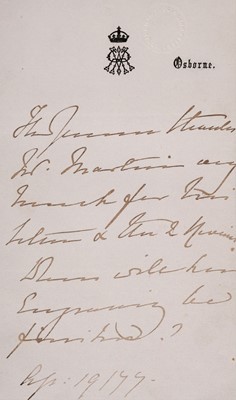 Osborne.
The Queen thanks
Mr. Martin very
much for his
letter & the 2 Reviews
When will his
Engraving be
finished?
Ap: 19 / 77.